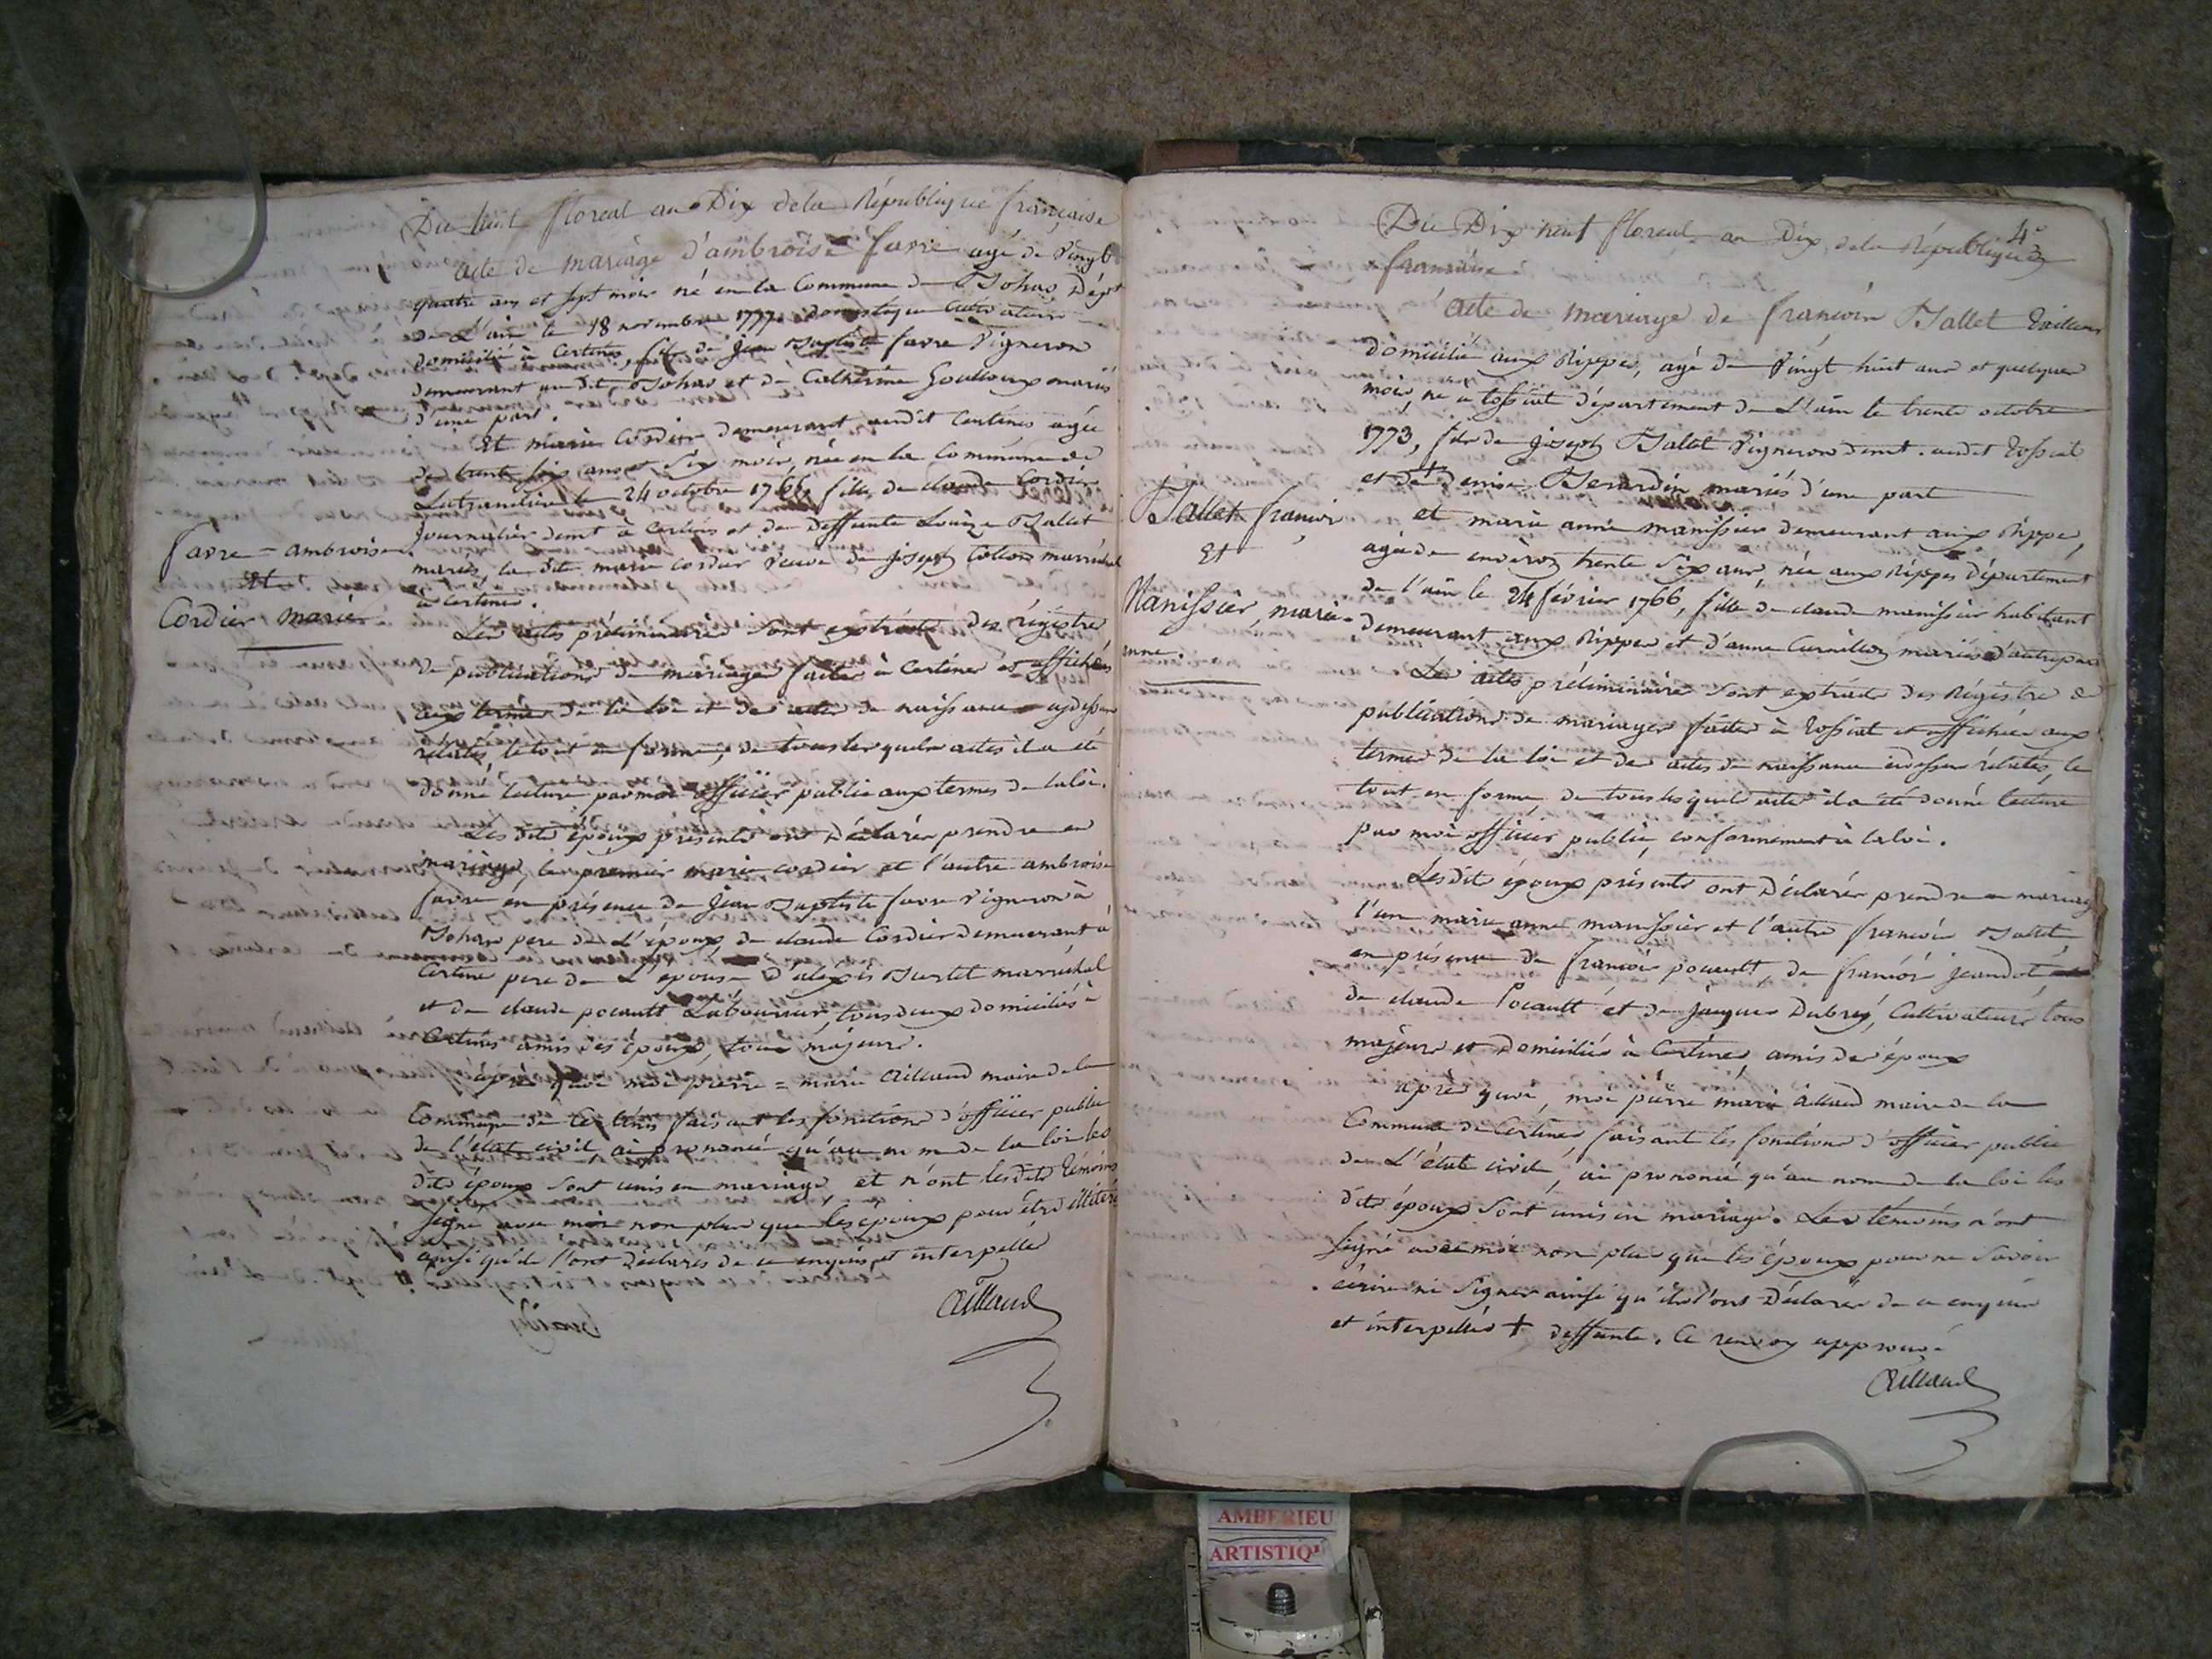 Du huit floreal an Dix de la République française
acte de mariage d'ambroise favre agé de Vingt
quatre ans et sept mois né en la Commune de Bohas Dépt
de L'ain le 18 novembre 1777 domestique Cultivateur
domicilié à Certines, fils de Jean Baptiste favre Vigneron
demeurant au dit Bohas et de Catherine mariés
d'une part.
Et marie Cordier demeurant audit Certines agée
de trente six ans et Six mois, née en la Commune de
le 24 octobre 1766, fille de claude Cordier
Journalier demt à Certines et de deffunte Louïze Ballet
mariés, la dite marie cordier Veuve de joseph maréchal
à Certines.
favre = ambroise
Et
Cordier marie
Les actes préliminaires Sont extraits des régistres
de publications de mariages faites à Certines et affichées
aux termes de la loi et des actes de naissance cydessus
rélatés, le tout en forme, de tous lesquels actes il a été
donné lecture par moi officier public aux termes de la loi.
Les dits époux présents ont Déclarés prendre en
mariage, le premier marie cordier et l'autre ambroise
favre en présence de Jean Baptiste favre Vigneron à
Bohas pere de L'époux, de claude Cordier demeurant à
Certines pere de L'épouse d'alexis maréchal
et de claude pocault Laboureur, tous deux domiciliés à
Certines amis des époux, tous majeurs.
après quoi moi pierre = marie Aillaud maire de la
Commune de Certines faisant les fonctions d'officier public
de l'état civil, ai prononcé qu'au nom de la loi les
dits époux Sont unis en mariage et n'ont lesdits témoins
signé avec moi non plus que les époux pour être illitérés
ainsi qu'ils l'ont Déclarés de ce enquis et interpellés
Aillaud
4e
Du Dix neuf floreal an Dix de la République
française
acte de mariage de françois Ballet tailleur
domicilié aux Rippes, agé de Vingt huit ans et quelques
mois, né a tossiat département de L'ain le trente octobre
1773, fils de joseph Ballet Vigneron demt. audit tossiat
et de + denise Berardin mariés d'une part
et marie anne manissier demeurant aux Rippes,
agée de environ trente Six ans, née aux Rippes département
de l'ain le 24 février 1766, fille de claude manissier habitant
demeurant aux Rippes et d'anne mariés d'autre part
Ballet françois
Et
Manissier, marie-
anne.
Les actes préliminaires Sont extraits des Régistres de
publications de mariages faites à tossiat et affichées aux
termes de la loi et des actes de naissance cidessus rélatés, le
tout en forme de tous lesquels actes il a été donné lecture
par moi officier public conformement à la loi.
Les dits époux présents ont Déclarés prendre en mariage
l'un marie anne manissier et l'autre françois Ballet
en présence de françois pocault, de françois jeandot,
de claude Pocault et de jacques Dubrey, Cultivateurs tous
majeurs et Domiciliés à Certines, amis des époux
après quoi, moi pierre marie Aillaud maire de la
Commune de Certines faisant les fonctions d'officier public
de L'état civil, ai prononcé qu'au nom de la loi les
dits époux Sont unis en mariage. Les témoins n'ont
signé avec moi non plus que les époux pour ne Savoir
écrire ni Signer ainsi qu'ils l'ont Déclarés de ce enquis
et interpellés + deffunte. Ce renvoy approuvé
Aillaud
AMBERIEU
ARTISTIQ